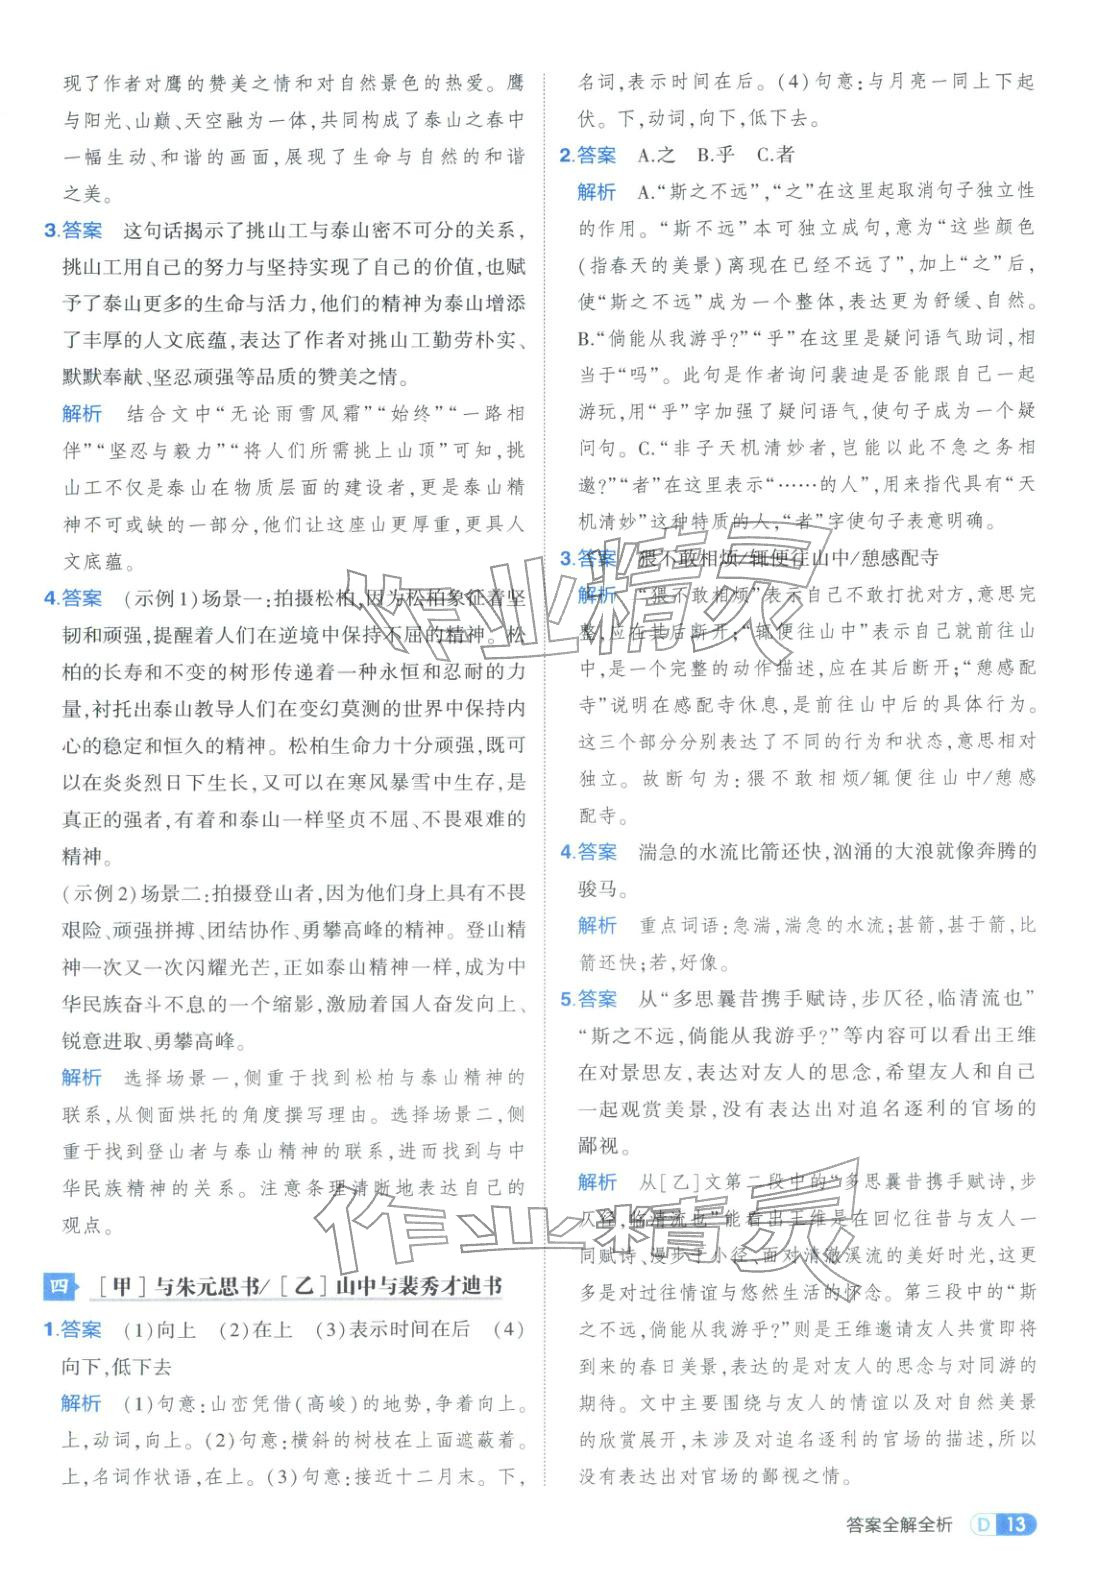 现了作者对鹰的赞美之情和对自然景色的热爱。鹰
与阳光、山巅、天空融为一体,共同构成了泰山之春中
一幅生动、和谐的画面,展现了生命与自然的和谐
之美。
3.答案 这句话揭示了挑山工与泰山密不可分的关系,
挑山工用自己的努力与坚持实现了自己的价值,也赋
予了泰山更多的生命与活力,他们的精神为泰山增添
了丰厚的人文底蕴,表达了作者对挑山工勤劳朴实、
默默奉献、坚忍顽强等品质的赞美之情。
解析 结合文中“无论雨雪风霜”“始终”“一路相
伴”“坚忍与毅力”“将人们所需挑上山顶”可知,挑
山工不仅是泰山在物质层面的建设者,更是泰山精
神不可或缺的一部分,他们让这座山更厚重,更具人
文底蕴。
4.答案 (示例1)场景一:拍摄松柏,因为松柏象征着坚
韧和顽强,提醒着人们在逆境中保持不屈的精神。松
柏的长寿和不变的树形传递着一种永恒和忍耐的力
量,衬托出泰山教导人们在变幻莫测的世界中保持内
心的稳定和恒久的精神。松柏生命力十分顽强,既可
以在炎炎烈日下生长,又可以在寒风暴雪中生存,是
真正的强者,有着和泰山一样坚贞不屈、不畏艰难的
精神。
(示例2)场景二:拍摄登山者,因为他们身上具有不畏
艰险、顽强拼搏、团结协作、勇攀高峰的精神。登山精
神一次又一次闪耀光芒,正如泰山精神一样,成为中
华民族奋斗不息的一个缩影,激励着国人奋发向上、
锐意进取、勇攀高峰。
解析 选择场景一,侧重于找到松柏与泰山精神的
联系,从侧面烘托的角度撰写理由。选择场景二,侧
重于找到登山者与泰山精神的联系,进而找到与中
华民族精神的关系。注意条理清晰地表达自己的
观点。
四 [甲]与朱元思书/[乙]山中与裴秀才迪书
1.答案 (1)向上 (2)在上 (3)表示时间在后 (4)
向下,低下去
解析 (1)句意:山峦凭借(高峻)的地势,争着向上。
上,动词,向上。(2)句意:横斜的树枝在上面遮蔽着。
上,名词作状语,在上。(3)句意:接近十二月末。下,
名词,表示时间在后。(4)句意:与月亮一同上下起
伏。下,动词,向下,低下去。
2.答案 A.之 B.乎 C.者
解析 A.“斯之不远”,“之”在这里起取消句子独立性
的作用。“斯不远”本可独立成句,意为“这些颜色
(指春天的美景)离现在已经不远了”,加上“之”后,
使“斯之不远”成为一个整体,表达更为舒缓、自然。
B.“倘能从我游乎?”“乎”在这里是疑问语气助词,相
当于“吗”。此句是作者询问裴迪是否能跟自己一起
游玩,用“乎”字加强了疑问语气,使句子成为一个疑
问句。C.“非子天机清妙者,岂能以此不急之务相
邀?”“者”在这里表示“……的人”,用来指代具有“天
机清妙”这种特质的人,“者”字使句子表意明确。
3.答案 猥不敢相烦/辄便往山中/憩感配寺
解析 “猥不敢相烦”表示自己不敢打扰对方,意思完
整,应在其后断开;“辄便往山中”表示自己就前往山
中,是一个完整的动作描述,应在其后断开;“憩感配
寺”说明在感配寺休息,是前往山中后的具体行为。
这三个部分分别表达了不同的行为和状态,意思相对
独立。故断句为:猥不敢相烦/辄便往山中/憩感
配寺。
4.答案 湍急的水流比箭还快,汹涌的大浪就像奔腾的
骏马。
解析 重点词语:急湍,湍急的水流;甚箭,甚于箭,比
箭还快;若,好像。
5.答案 从“多思曩昔携手赋诗,步仄径,临清流也”
“斯之不远,倘能从我游乎?”等内容可以看出王维
在对景思友,表达对友人的思念,希望友人和自己
一起观赏美景,没有表达出对追名逐利的官场的
鄙视。
解析 从[乙]文第二段中的“多思曩昔携手赋诗,步
仄径,临清流也”能看出王维是在回忆往昔与友人一
同赋诗、漫步于小径、面对清澈溪流的美好时光,这更
多是对过往情谊与悠然生活的怀念。第三段中的“斯
之不远,倘能从我游乎?”则是王维邀请友人共赏即将
到来的春日美景,表达的是对友人的思念与对同游的
期待。文中主要围绕与友人的情谊以及对自然美景
的欣赏展开,未涉及对追名逐利的官场的描述,所以
没有表达出对官场的鄙视之情。
作业精灵
作业精灵
答案全解全析 D 13